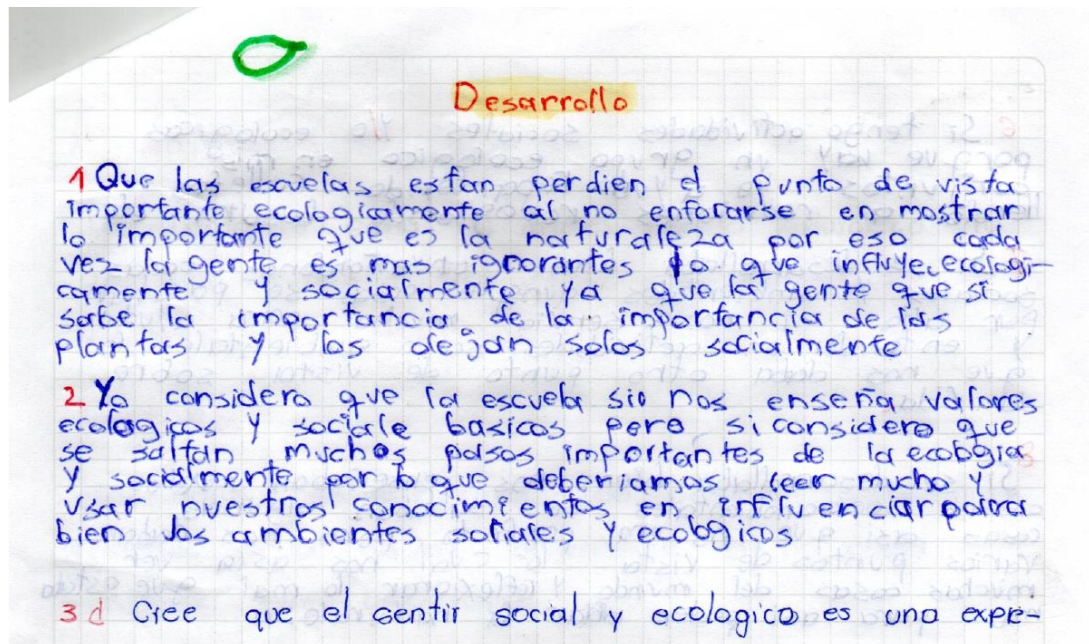 Desarrollo
1 Que las escuelas estan perdien el punto de vista
importante ecologicamente al no enfocarse en mostrar
lo importante que es la naturaleza por eso cada
vez la gente es mas ignorantes lo que influye ecologi-
camente y socialmente ya que la gente que si
sabe la importancia de la importancia de las
plantas y los dejan solos socialmente
2 Yo considero que la escuela si nos enseña valores
ecologicos y sociale basicos pero si considero que
se saltan muchos pasos importantes de la ecologia
y socialmente por lo que deberiamos leer mucho y
usar nuestros conocimientos en influenciar para
bien los ambientes sociales y ecologicos
3 d Cree que el sentir social y ecologico es una expe-